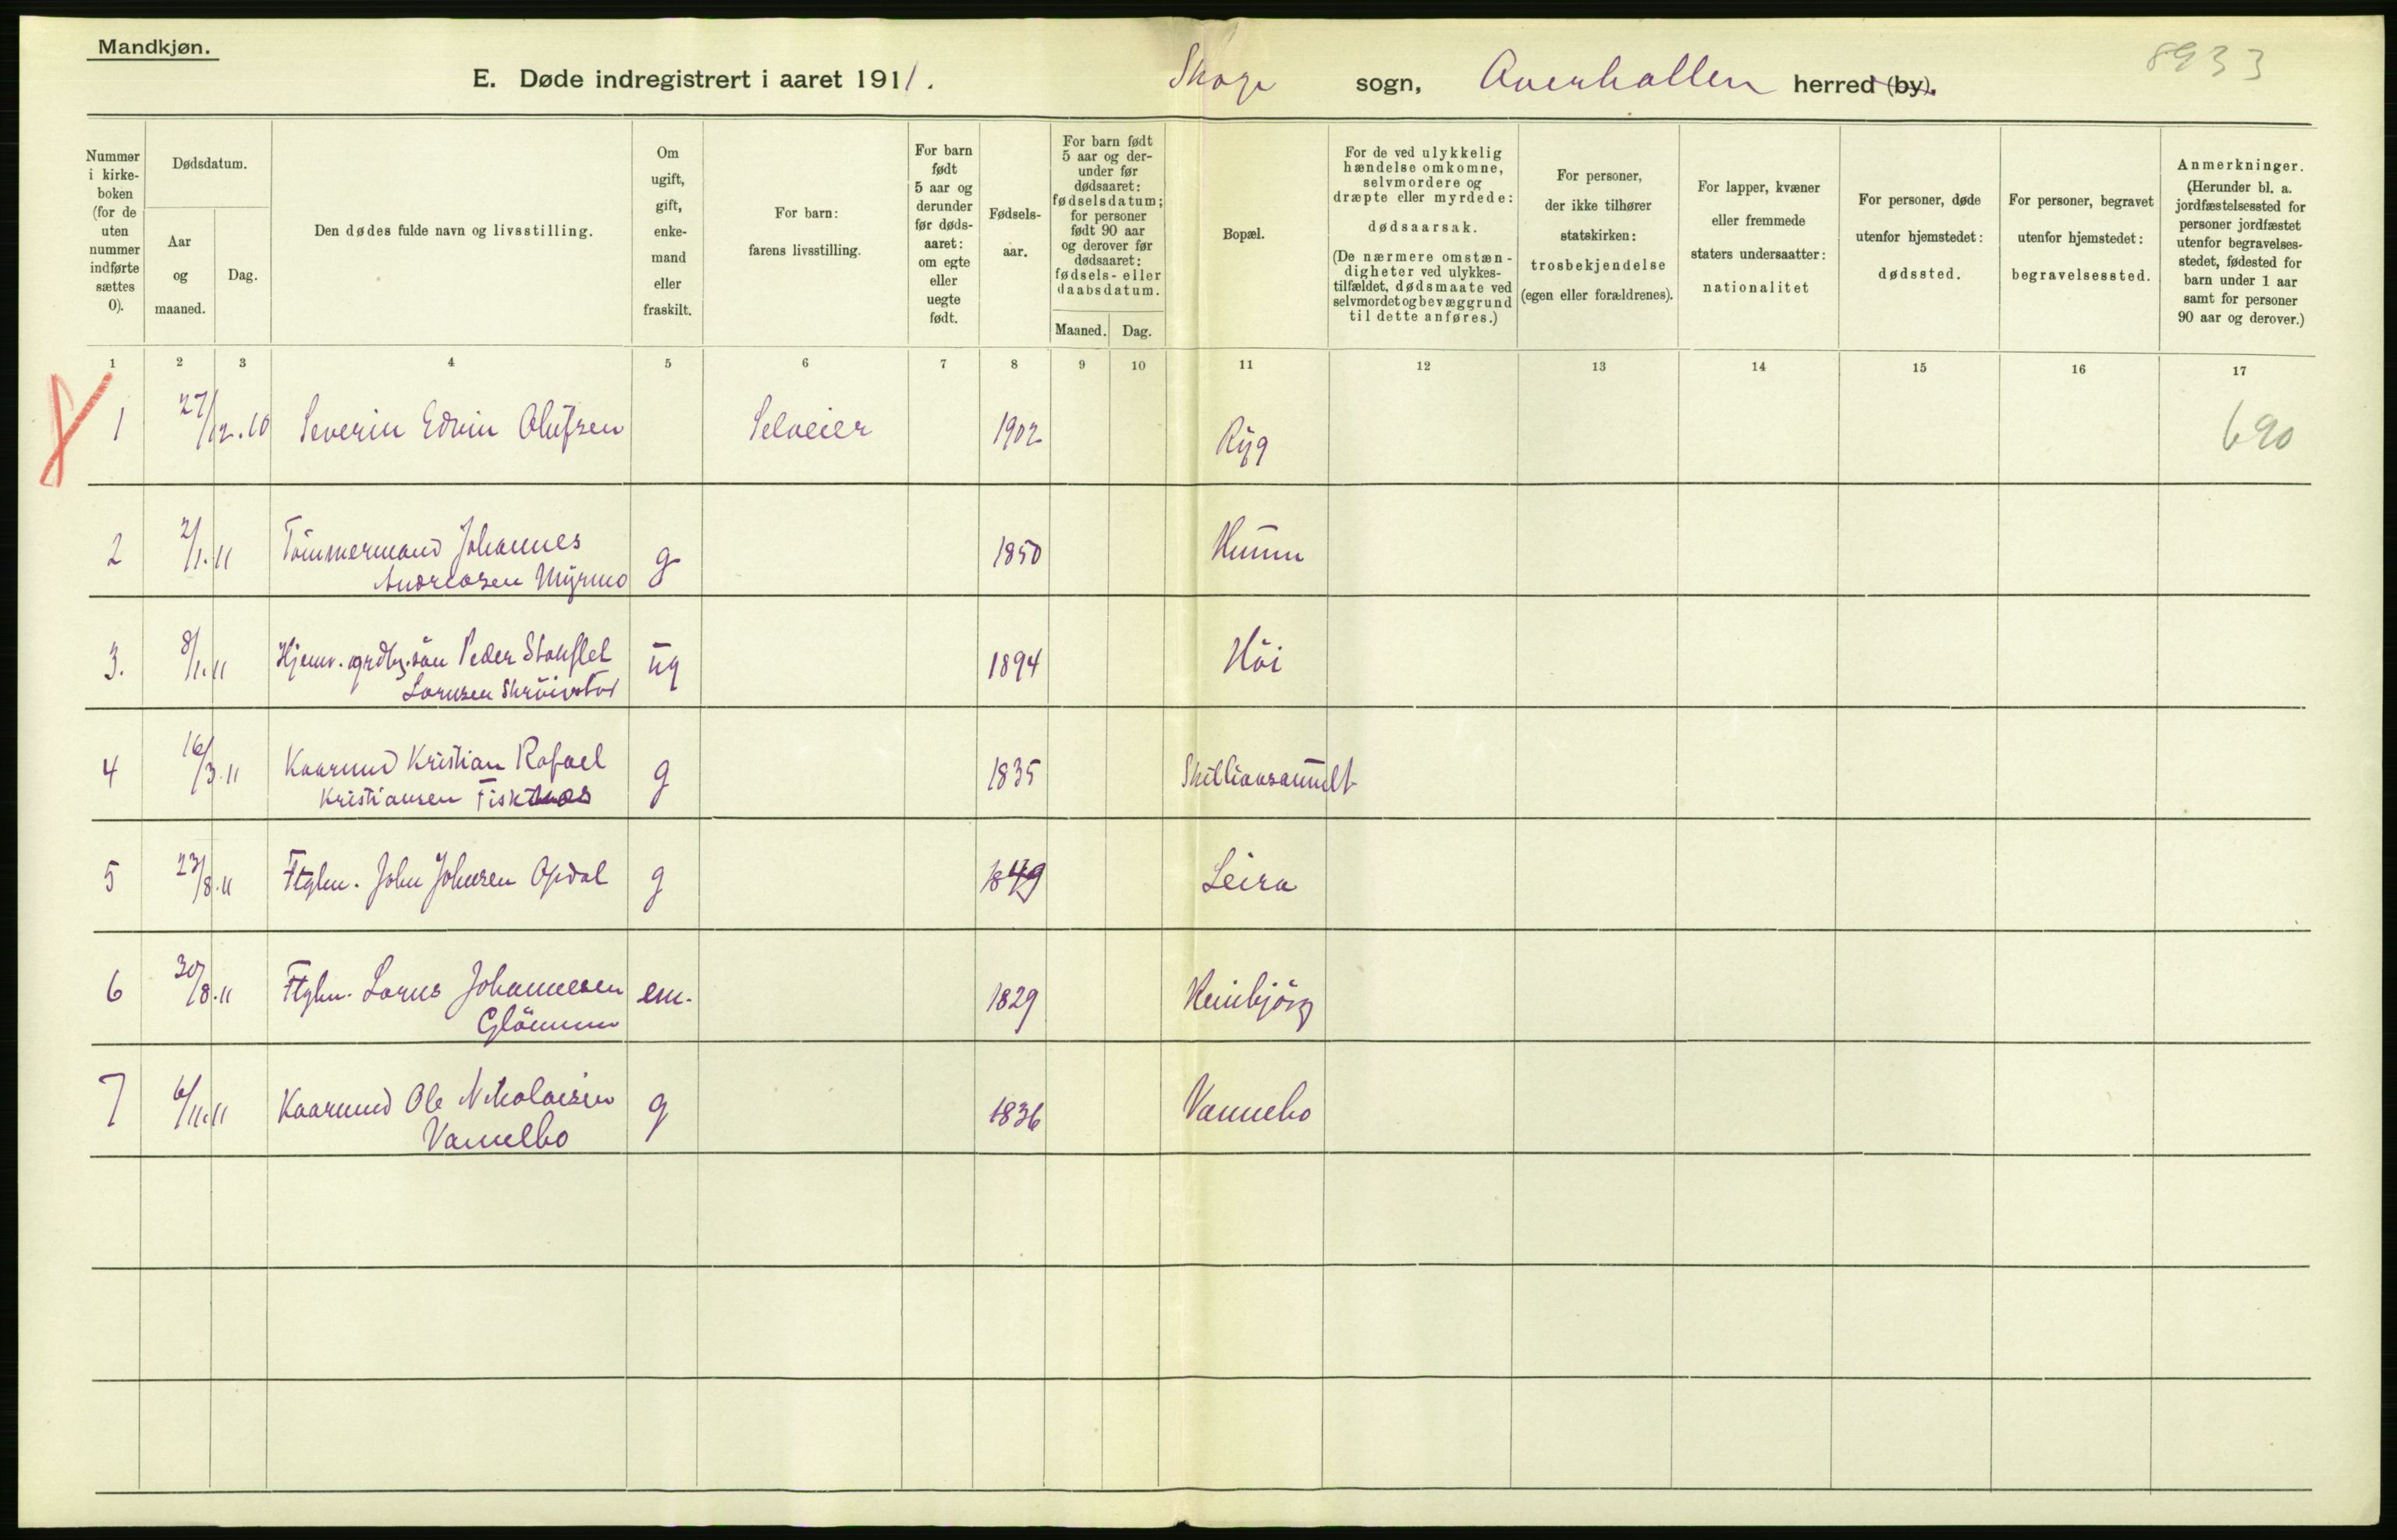 Mandkjøn.
8933
E. Døde indregistrert i aaret 1911. Skage sogn, Overhallen herred (by).
Nummer i kirkeboken (for de uten nummer indførte sættes 0).
Dødsdatum.
Aar og maaned.
Dag.
Den dødes fulde navn og livsstilling.
Om ugift, gift, enkemand eller fraskilt.
For barn: farens livsstilling.
For barn født 5 aar og derunder før dødsaaret: om egte eller uegte født.
Fødselsaar.
For barn født 5 aar og derunder før dødsaaret: fødselsdatum; for personer født 90 aar og derover før dødsaaret: fødsels- eller daabsdatum.
Maaned. Dag.
Bopæl.
For de ved ulykkelig hændelse omkomne, selvmordere og dræpte eller myrdede: dødsaarsak.
(De nærmere omstændigheter ved ulykkestilfældet, dødsmaate ved selvmordet og bevæggrund til dette anføres.)
For personer, der ikke tilhører statskirken: trosbekjendelse (egen eller forældrenes).
For lapper, kvæner eller fremmede staters undersaatter: nationalitet
For personer, døde utenfor hjemstedet: dødssted.
For personer, begravet utenfor hjemstedet: begravelsessted.
Anmerkninger.
(Herunder bl. a. jordfæstelsessted for personer jordfæstet utenfor begravelsesstedet, fødested for barn under 1 aar samt for personer 90 aar og derover.)
1 2 3 4 5 6 7 8 9 10 11 12 13 14 15 16 17
1 27/12.10 Severin Edvin Olufsen Selveier 1902 Ryg 690
2 2/1.11 Tömmermand Johannes
Andreasen Myrmo g 1850 Hunn
3. 8/1.11 Hjemv. grdbr.sön Peder Stenflet
Lornsen ug 1894 Höi
4 16/3.11 Kaarmand Kristian Rafael
Kristiansen g 1835
5 23/8.11 Ftghn. John Johnsen Opdal g 1849 Leira
6 30/8.11 Ftghn. Lorns Johannesen
Glömmen em. 1829
7 6/11.11 Kaarmand Ole Nikolaisen
Vannebo g 1836 Vannebo